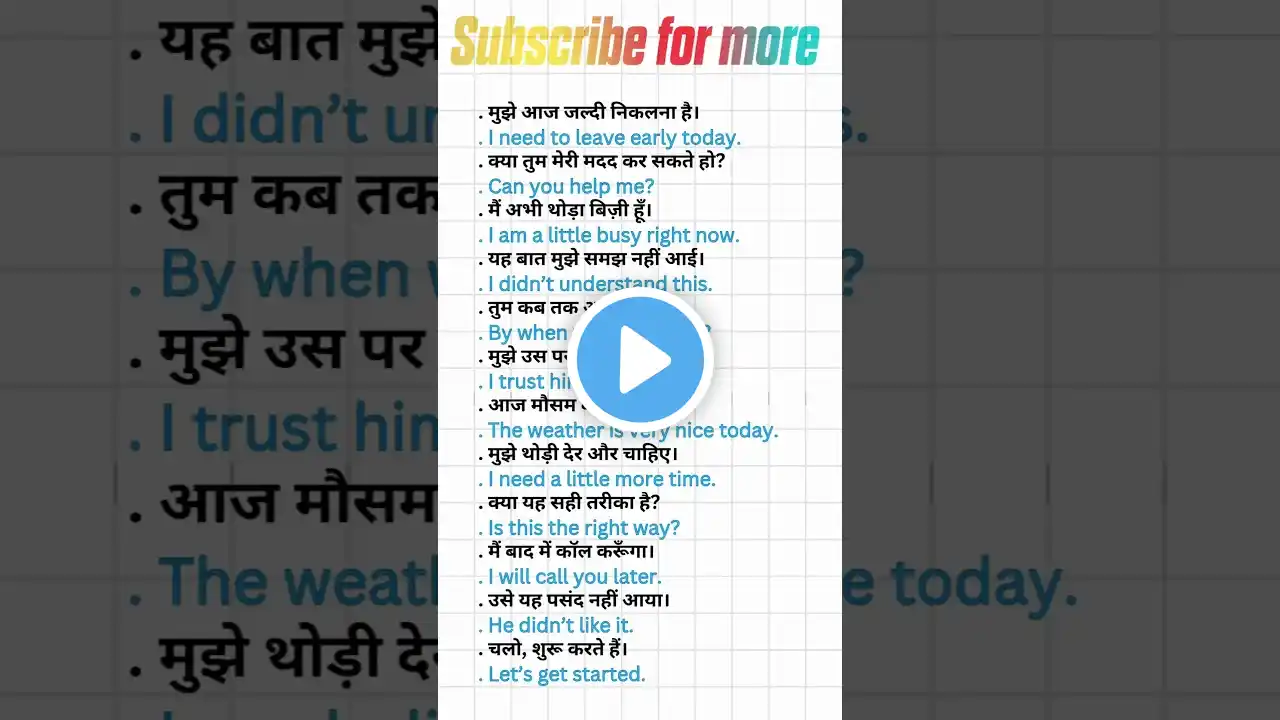 Subscribe for more
. मुझे आज जल्दी निकलना है।
. I need to leave early today.
. क्या तुम मेरी मदद कर सकते हो?
. Can you help me?
. मैं अभी थोड़ा बिज़ी हूँ।
. I am a little busy right now.
. यह बात मुझे समझ नहीं आई।
. I didn't understand this.
. तुम कब तक
. By when
. मुझे उस पर
. I trust
. आज मौसम
. The weather is very nice today.
. मुझे थोड़ी देर और चाहिए।
. I need a little more time.
. क्या यह सही तरीका है?
. Is this the right way?
. मैं बाद में कॉल करूँगा।
. I will call you later.
. उसे यह पसंद नहीं आया।
. He didn't like it.
. चलो, शुरू करते हैं।
. Let's get started.